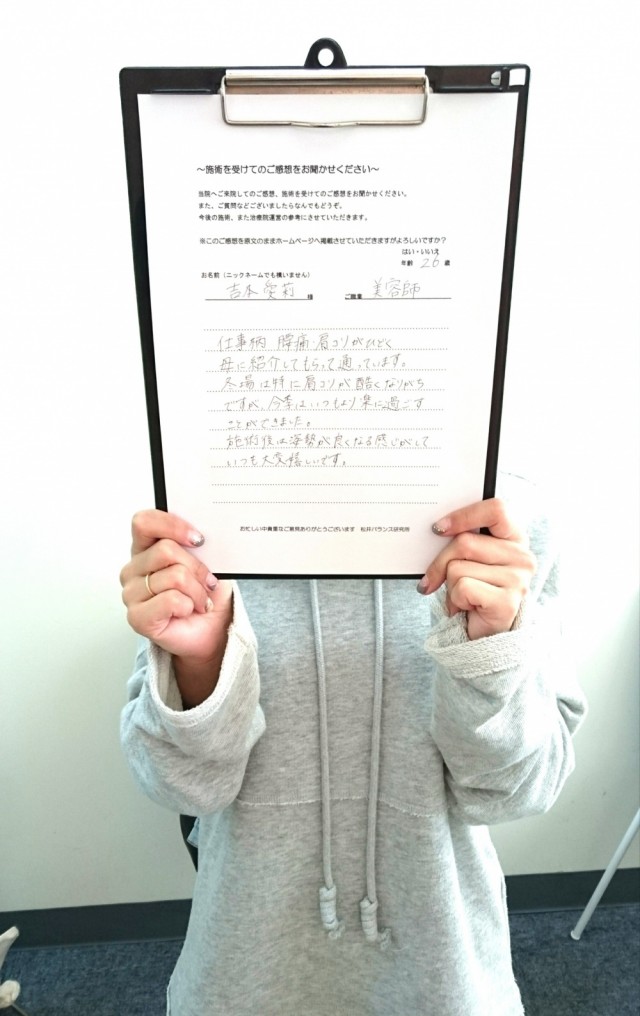 ～施術を受けてのご感想をお聞かせください～
当院へご来院してのご感想、施術を受けてのご感想をお聞かせください。
また、ご質問などございましたらなんでもどうぞ。
今後の施術、また治療院運営の参考にさせていただきます。
※このご感想を原文のままホームページへ掲載させていただきますがよろしいですか？
はい・いいえ
年齢 26 歳
お名前（ニックネームでも構いません）
吉本 愛莉 様 ご職業 美容師
仕事柄 腰痛 肩コリがひどく
母に紹介してもらって通っています。
冬場は特に肩コリが酷くなりがち
ですが、今季はいつもより楽に過ごす
ことができました。
施術後は姿勢が良くなる感じがして
いつも大変嬉しいです。
お忙しい中貴重なご意見ありがとうございます 松井バランス研究所